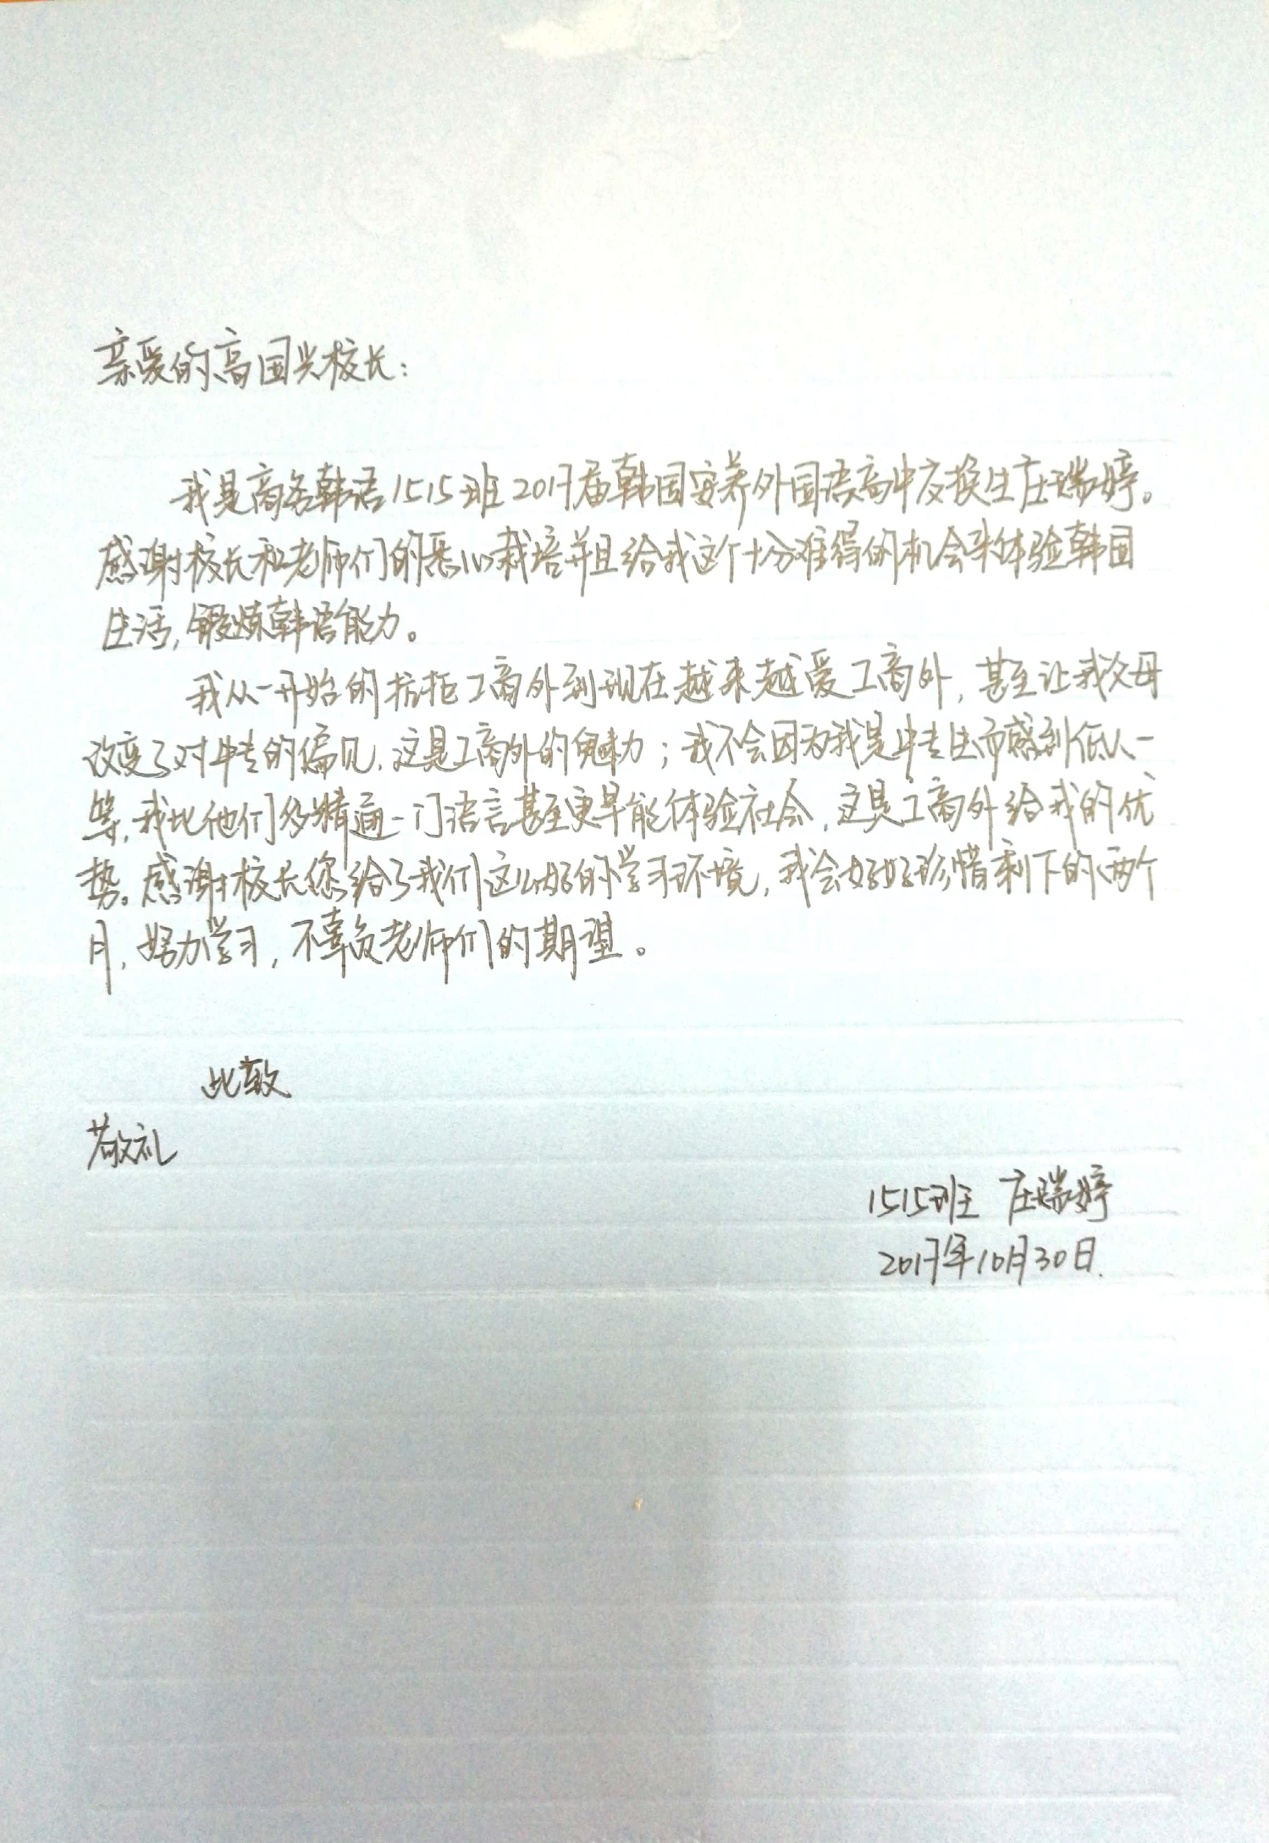 亲爱的高国兴校长：
我是商务韩语1515班2017届韩国安养外国语高中交换生庄瑞婷。
感谢校长和老师们的悉心栽培并且给我这个十分难得的机会来体验韩国
生活，锻炼韩语能力。
我从一开始的抗拒工商外到现在越来越爱工商外，甚至让我父母
改变了对中专的偏见，这是工商外的魅力；我不会因为我是中专生而感到低人一
等，我比他们多精通一门语言甚至更早能体验社会，这是工商外给我的优
势。感谢校长您给了我们这么好的学习环境，我会好好珍惜剩下的两个
月，努力学习，不辜负老师们的期望。
此致
敬礼
1515班 庄瑞婷
2017年10月30日.